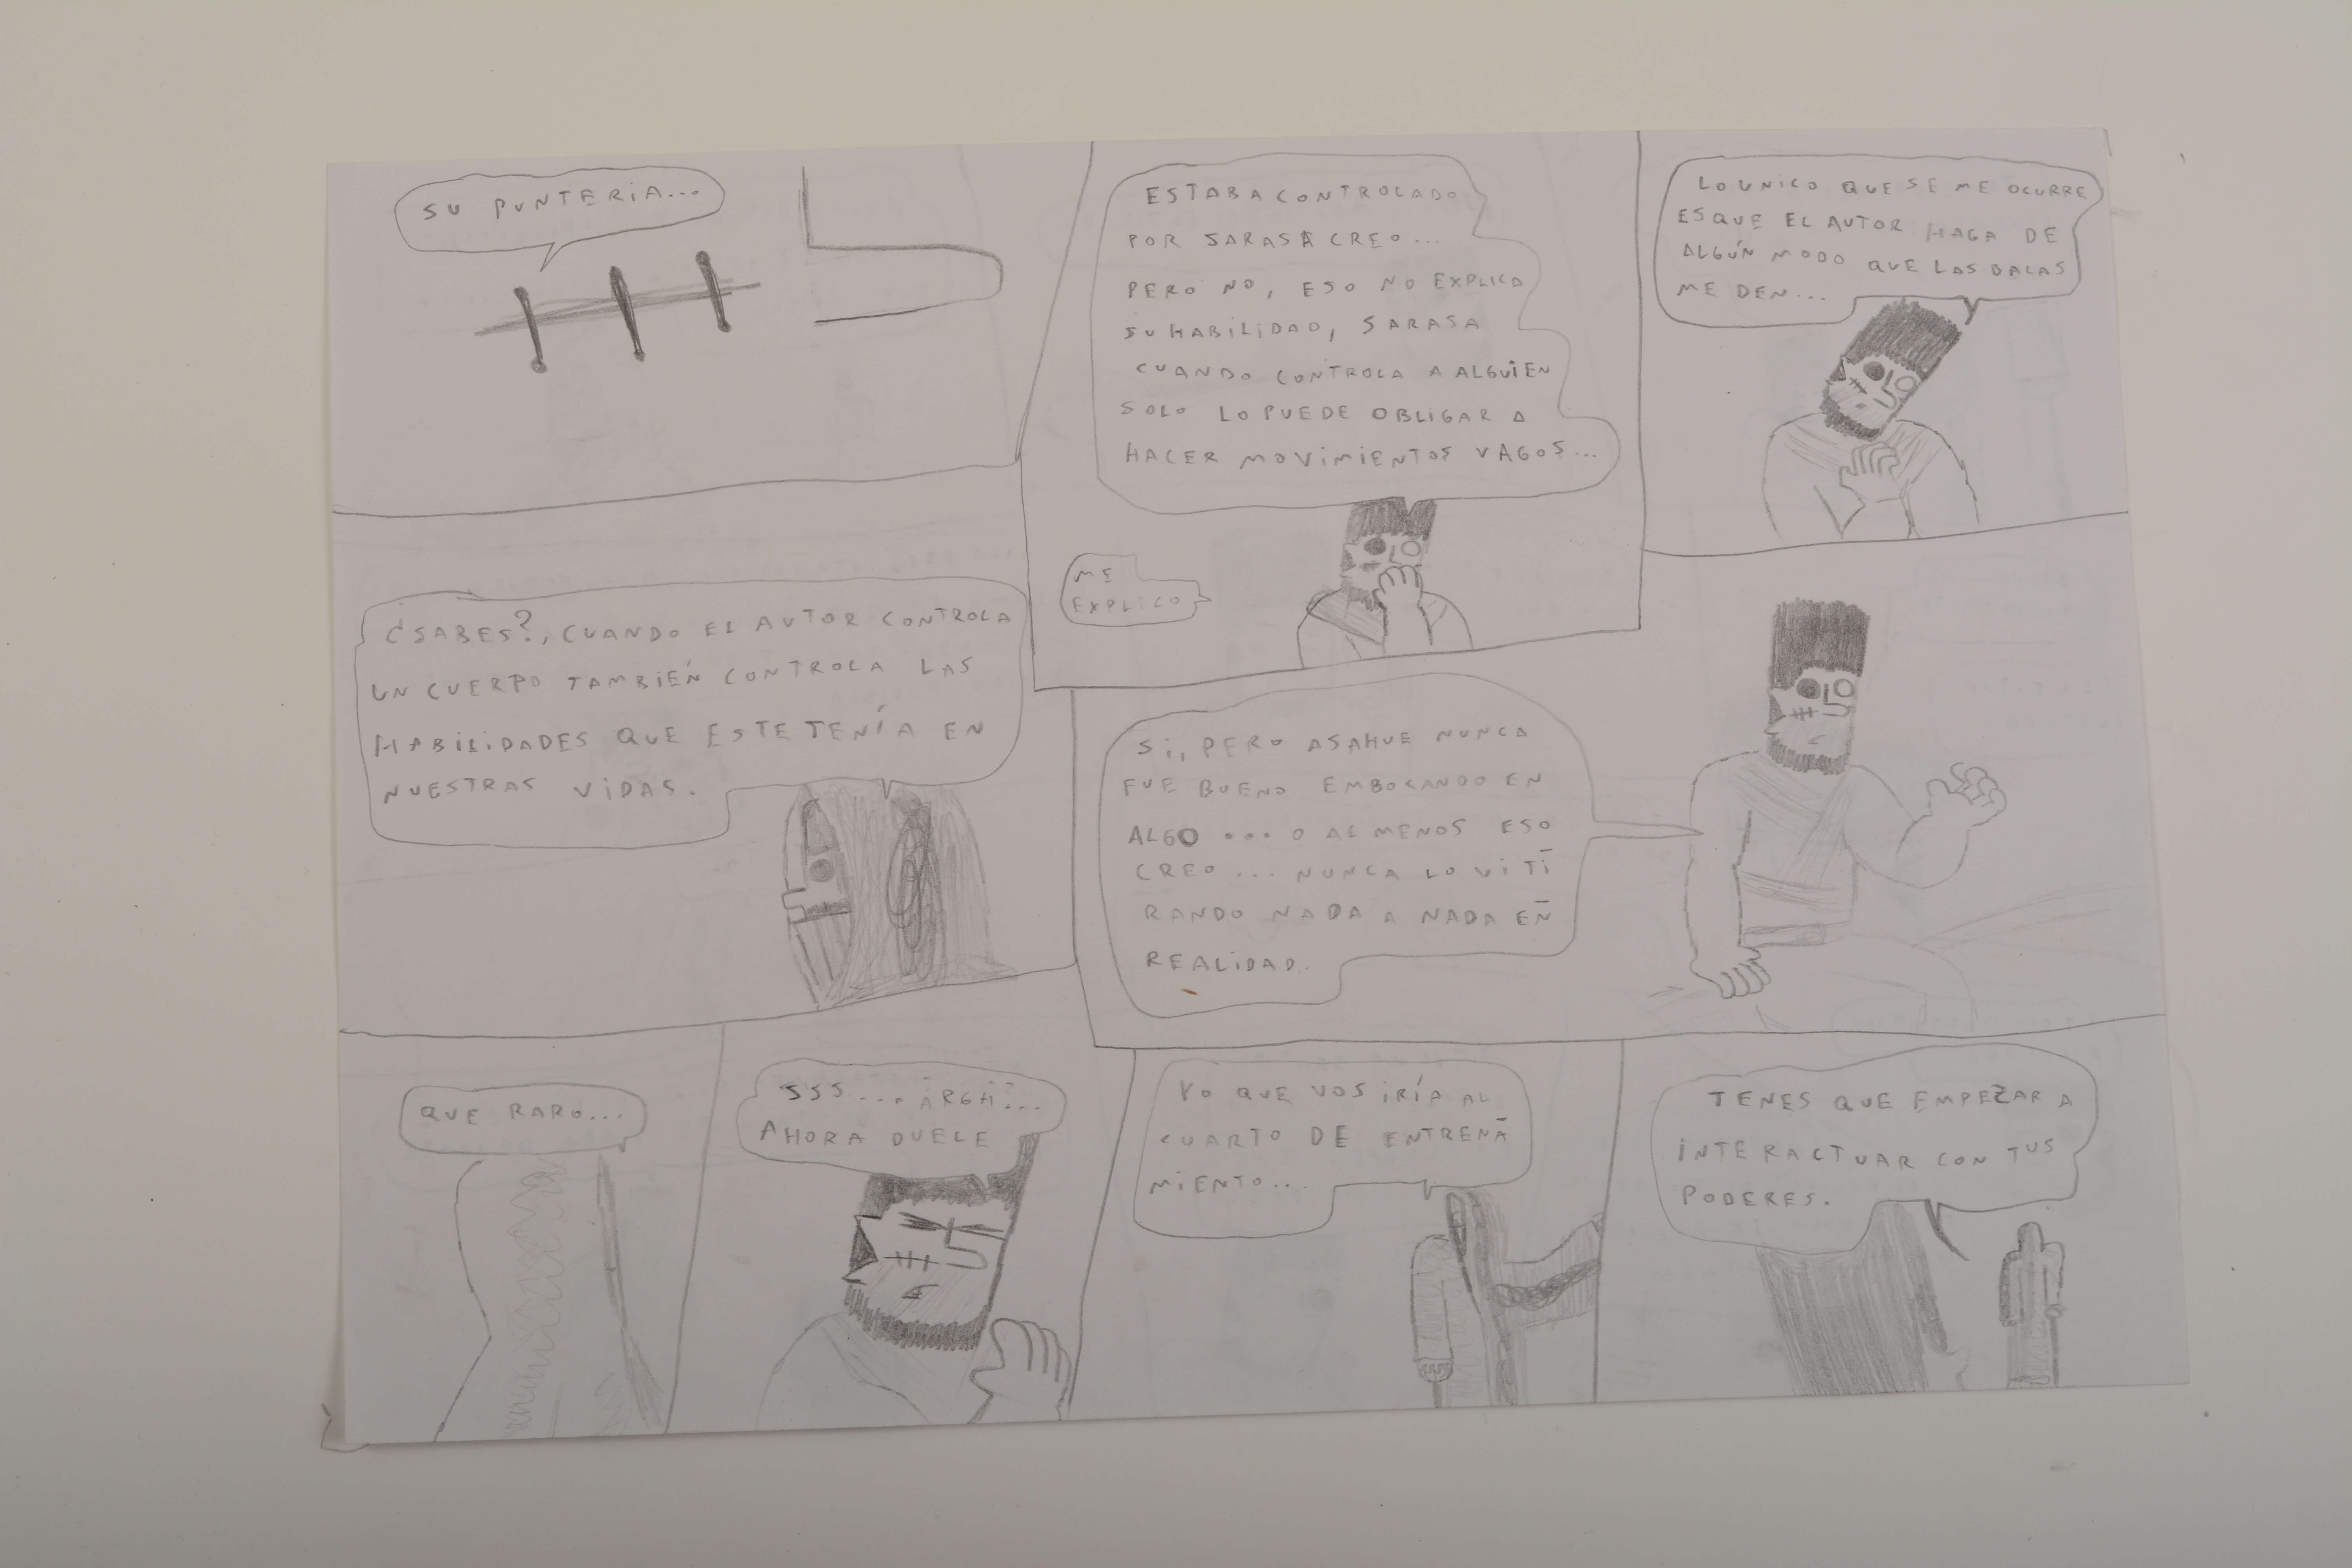 SU PUNTERIA...
ESTABA CONTROLADO
POR SARASA CREO...
PERO NO, ESO NO EXPLICA
SU HABILIDAD, SARASA
CUANDO CONTROLA A ALGUIEN
SOLO LO PUEDE OBLIGAR A
HACER MOVIMIENTOS VAGOS...
ME
EXPLICO
LO UNICO QUE SE ME OCURRE
ES QUE EL AUTOR HAGA DE
ALGÚN MODO QUE LAS BALAS
ME DEN...
¿SABES?, CUANDO EL AUTOR CONTROLA
UN CUERPO TAMBIÉN CONTROLA LAS
HABILIDADES QUE ESTE TENÍA EN
NUESTRAS VIDAS.
SI, PERO ASAHUE NUNCA
FUE BUENO EMBOCANDO EN
ALGO ... O AL MENOS ESO
CREO... NUNCA LO VI TI
RANDO NADA A NADA EN
REALIDAD.
QUE RARO...
SSS.... ARGH?...
AHORA DUELE
YO QUE VOS IRÍA AL
CUARTO DE ENTRENA
MIENTO...
TENES QUE EMPEZAR A
INTERACTUAR CON TUS
PODERES.